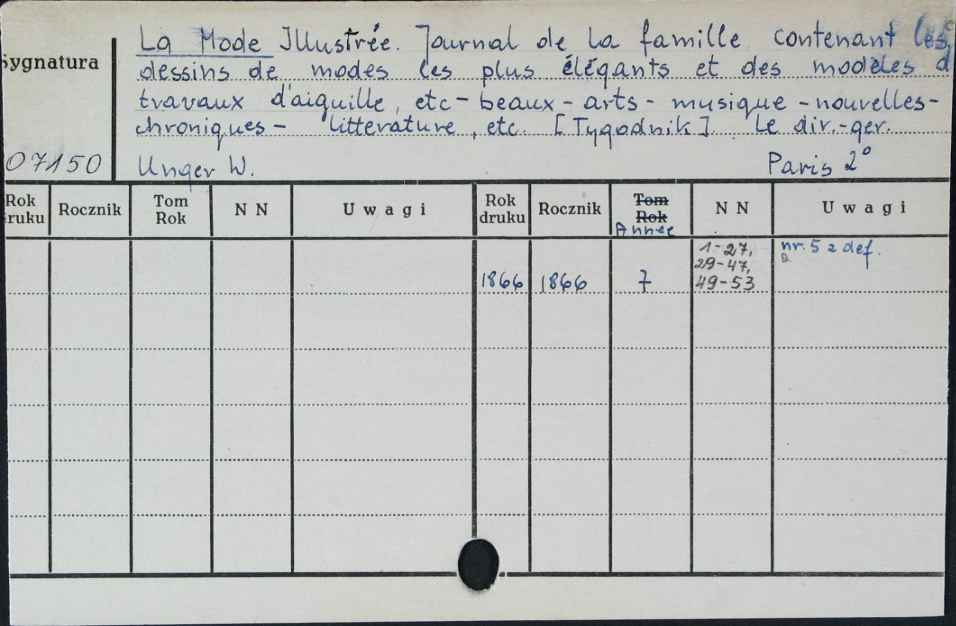 La Mode Illustrée. Journal de la famille contenant les
Sygnatura
dessins de modes les plus élégants et des modèles d
travaux d'aiguille, etc - beaux - arts - musique - nouvelles -
chroniques - littérature, etc. [Tygodnik] Le dir.-ger.
07150 Unger W. Paris 2°
Rok druku Rocznik Tom Rok N N Uwagi Rok druku Rocznik Tom Rok Année N N Uwagi
1866 1866 7 1-27, 29-47, 49-53 nr. 5 z def.